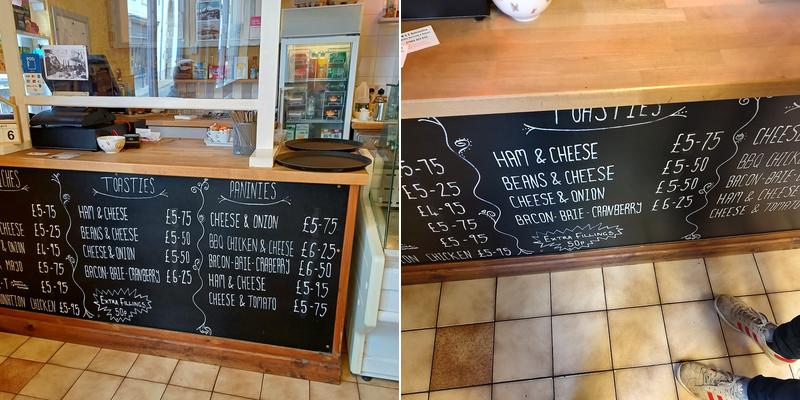 TOASTIES
HAM & CHEESE £5-75
BEANS & CHEESE £5-50
CHEESE & ONION £5-50
BACON-BRIE-CRANBERRY £6-25
EXTRA FILLINGS
50p
PANINIES
CHEESE & ONION £5-75
BBQ CHICKEN & CHEESE £6-25
BACON-BRIE-CRANBERRY £6-50
HAM & CHEESE £5-95
CHEESE & TOMATO £5-75
£5-75
CHEESE £5-25
& ONION £4-95
& MAYO £5-75
£5-95
CHICKEN £5-95
6
TOASTIES
HAM & CHEESE £5-75
BEANS & CHEESE £5-50
CHEESE & ONION £5-50
BACON-BRIE-CRANBERRY £6-25
EXTRA FILLINGS
50p
5-75
£5-25
£4-95
£5-75
£5-95
CHICKEN £5-95
CHEESE
BBQ CHICKEN
BACON-BRIE
HAM & CHEESE
CHEESE & TOMATO